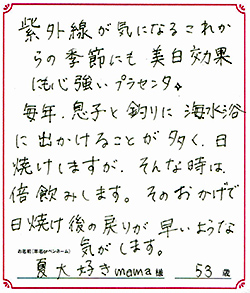 紫外線が気になるこれか
らの季節にも 美白効果
にも心強いプラセンタ。
毎年、息子と釣りに 海水浴
に出かけることが多く、日
焼けしますが、そんな時は
倍飲みします。そのおかげで
日焼け後の戻りが 早いような
気がします。
お名前(本名orペンネーム)
夏大好きmama 様 53 歳